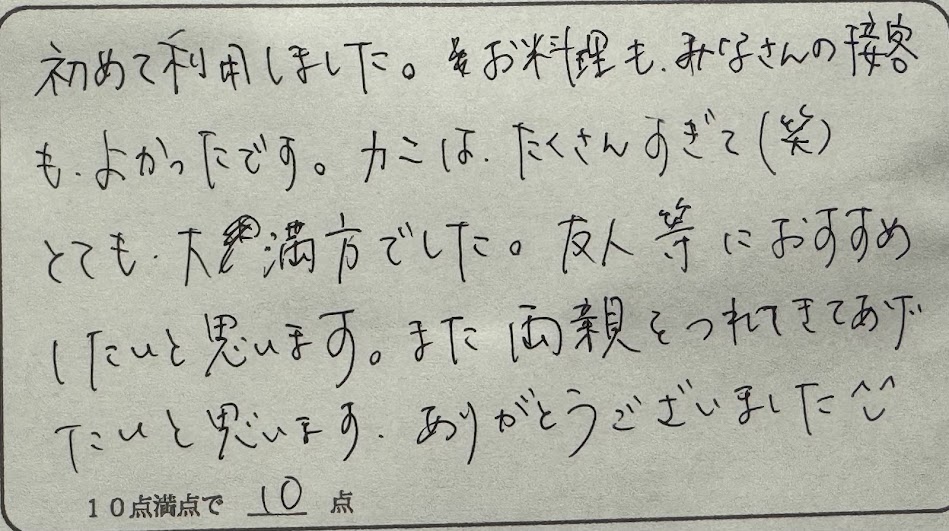 初めて利用しました。お料理も、みなさんの接客
も、よかったです。カニは、たくさんすぎて(笑)
とても、大満方でした。友人等におすすめ
したいと思います。また両親をつれてきてあげ
たいと思います。ありがとうございました^^
10点満点で 10 点